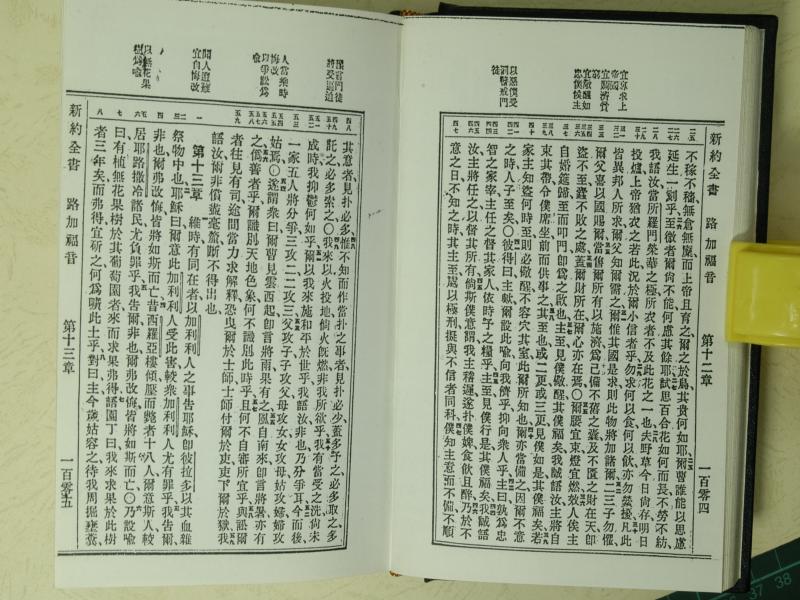 新約全書　路加福音　第十二章　一百零四
宜專求上
帝國
宜賙濟貧
窮
宜儆醒如
忠僕候主
以惡僕受
罰警戒門
徒
不稼不穡、無倉無廩、而上帝且育之、爾之於鳥、其貴何如耶、爾曹誰能以思慮
延生一刻乎、至微者爾尚不能、何慮其餘耶、試思百合花如何而長、不勞不紡、
我語汝、當所羅門榮華之極、所衣者不及此花之一也、夫野草今日尚存、明日
投爐、上帝猶衣之若此、況於爾小信者乎、勿求何以食、何以飲、亦勿縈擾、凡此
皆異邦人所求、爾父知爾需之、爾惟其國是求、則此物將加諸爾、二三子勿懼、
爾父喜以國賜爾、當售爾所有以施濟、爲己備不舊之囊、及不匱之財在天、卽
盜不至、蠹不敗之處、蓋爾財所在、爾心亦在焉、〇爾腰宜束、燈宜燃、效人俟主
自婚筵歸、至而叩門、卽爲之啟也、主至、見僕儆醒、其僕福矣、我誠語汝、主將自
束其帶、令僕席坐、前而供事之、其至也、或二更或三更、見僕如是、其僕福矣、若
家主知盜何時至、則必儆醒、不容穴其室、此爾所知也、爾亦當備之、因爾不意
之時、人子至矣、〇彼得曰、主歟、爾設此喻、向我儕乎、抑向衆人乎、主曰、孰爲忠
智之家宰、主任之督其家人、依時予之糧乎、主至、見僕行是、其僕福矣、我誠語
汝、主將任之以督其所有、倘斯僕意謂我主稽遲、遂扑僕婢、食飲且醉、乃於不
意之日、不知之時、其主至、處以極刑、擬與不信者同科、僕知主意而不備、不順
預言門徒
將受逼迫
人當乘時
悔改
以爭訟爲
喻
聞人遭難
宜自悔改
以無花果
樹爲喻
其意者、見扑必多、惟不知而作當扑之事者、見扑必少、蓋多予之、必多取之、多
託之、必多索之、〇我來以火投地、倘火旣燃、非我所欲乎、我有當受之洗、尚未
成時、我抑鬱何如乎、爾以我來施和平於世乎、我語汝、非也、乃分爭耳、今而後、
一家五人將分爭、三攻二、二攻三、父攻子、子攻父、母攻女、女攻母、姑攻婦、婦攻
姑焉、〇遂謂衆曰、爾曹見雲西起、卽言將雨、果有之、風自南來、卽言將暑、亦有
之、僞善者乎、爾識別天地色象、何不識別此時乎、且何不自審所宜乎、與訟爾
者往見有司、途間當力求解釋、恐曳爾於士師、士師付爾於吏、吏下爾於獄、我
語汝、爾非償毫釐、斷不得出也、
第十三章　維時有同在者、以加利利人之事告耶穌、卽彼拉多以其血雜
祭物中也、耶穌曰、爾意此加利利人受此害、較衆加利利人尤有罪乎、我吿爾、
非也、爾弗改悔、皆將如斯而亡、昔西羅亞樓傾、壓而斃者十八人、爾意斯人較
居耶路撒冷諸民尤負罪乎、我吿爾、非也、爾弗改悔、皆將如斯而亡、〇乃設喻
曰、有植無花果樹於其葡萄園者、來而求果弗得、語園丁曰、我來求果於此樹
者三年矣、而弗得、宜斫之、何爲曠此土乎、對曰、主、今歲姑容之、待我周掘壅糞、
新約全書　路加福音　第十三章　一百零五
37 38